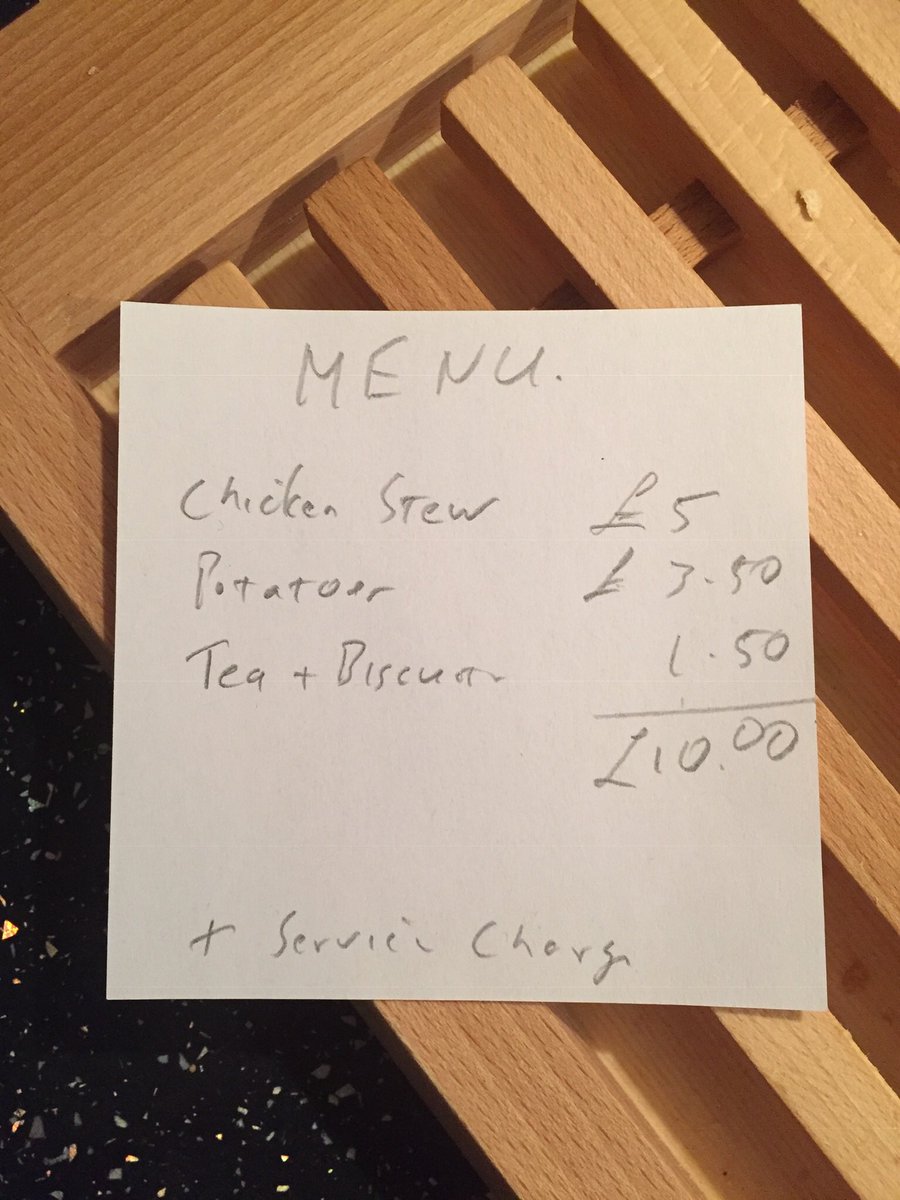 MENU.
Chicken Stew £5
Potatoes £3.50
Tea + Biscuits 1.50
£10.00
+ Service Charge